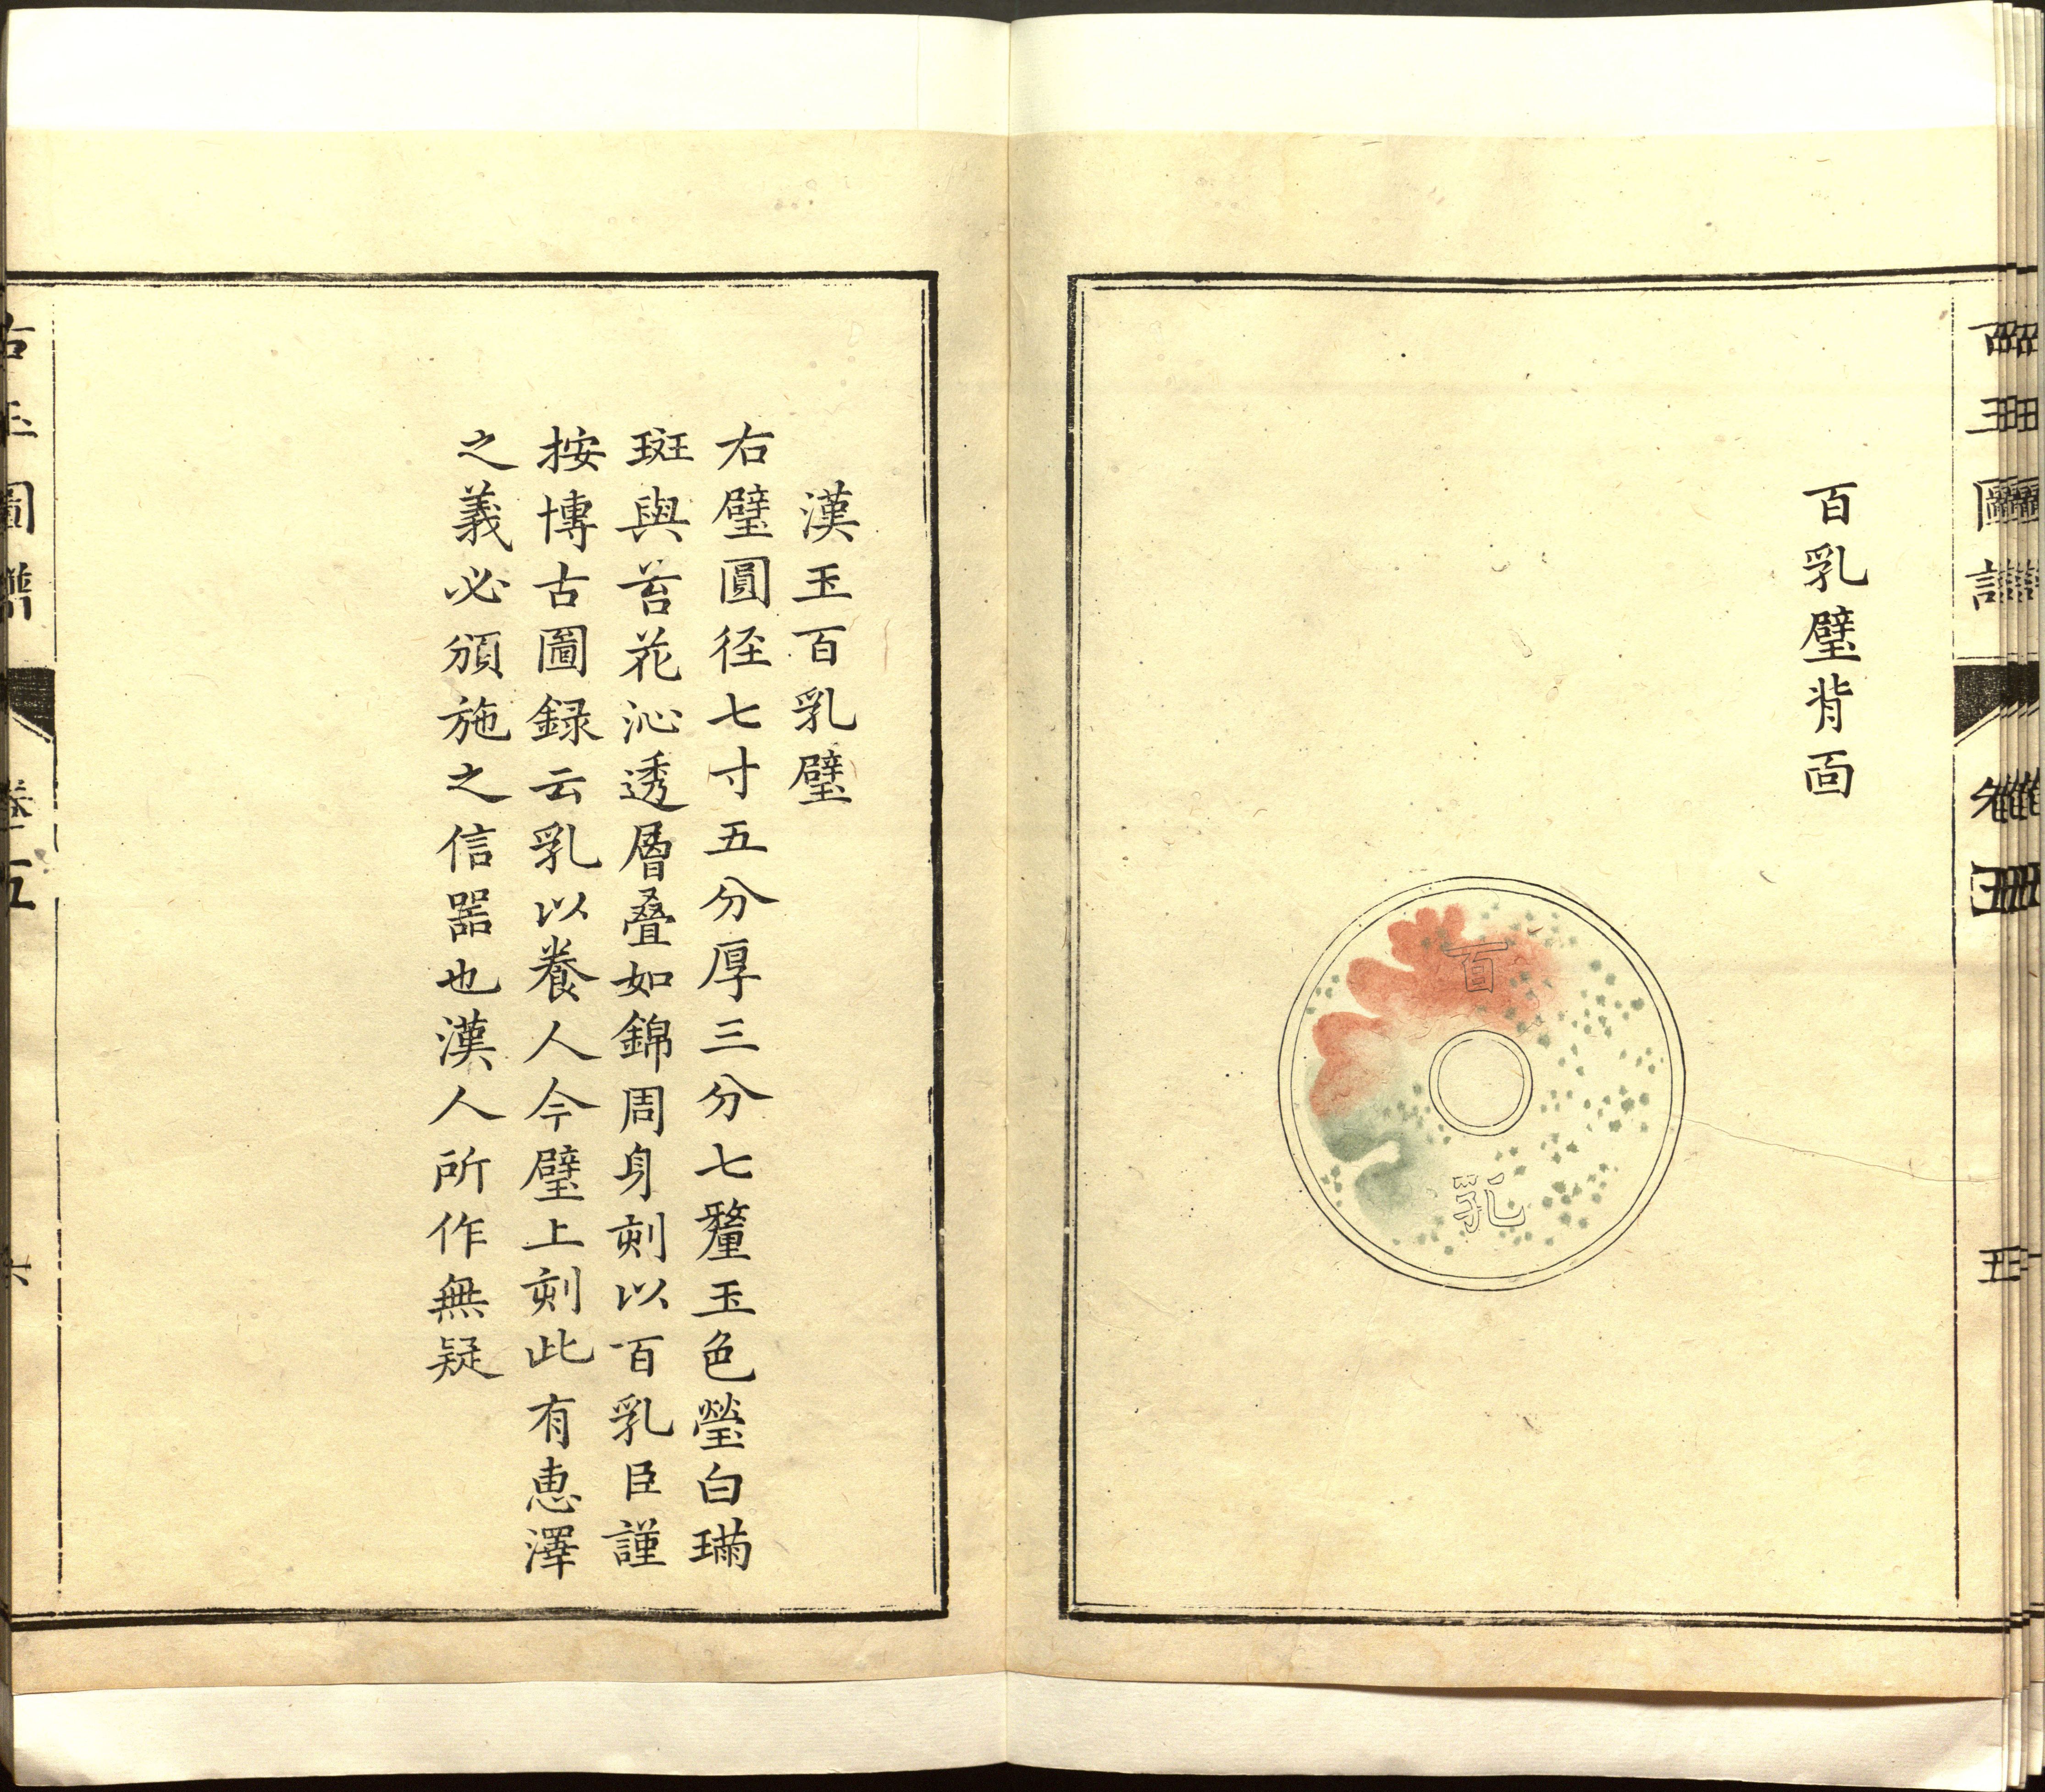 百乳璧背面
百
乳
漢玉百乳璧
右璧圓径七寸五分厚三分七釐玉色瑩白璊
斑與苔花沁透層叠如錦周身刻以百乳臣謹
按博古圖録云乳以養人今璧上刻此有恵澤
之義必頒施之信噐也漢人所作無疑
古玉圖譜
卷五